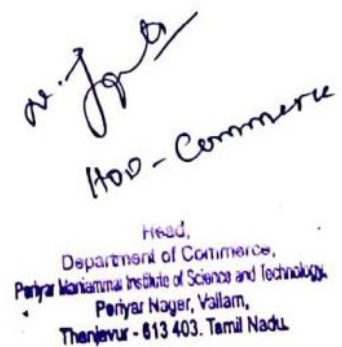 HOD - Commerce
Head,
Department of Commerce,
Periyar Maniammai Institute of Science and Technology,
Periyar Nagar, Vallam,
Thanjavur - 613 403. Tamil Nadu.